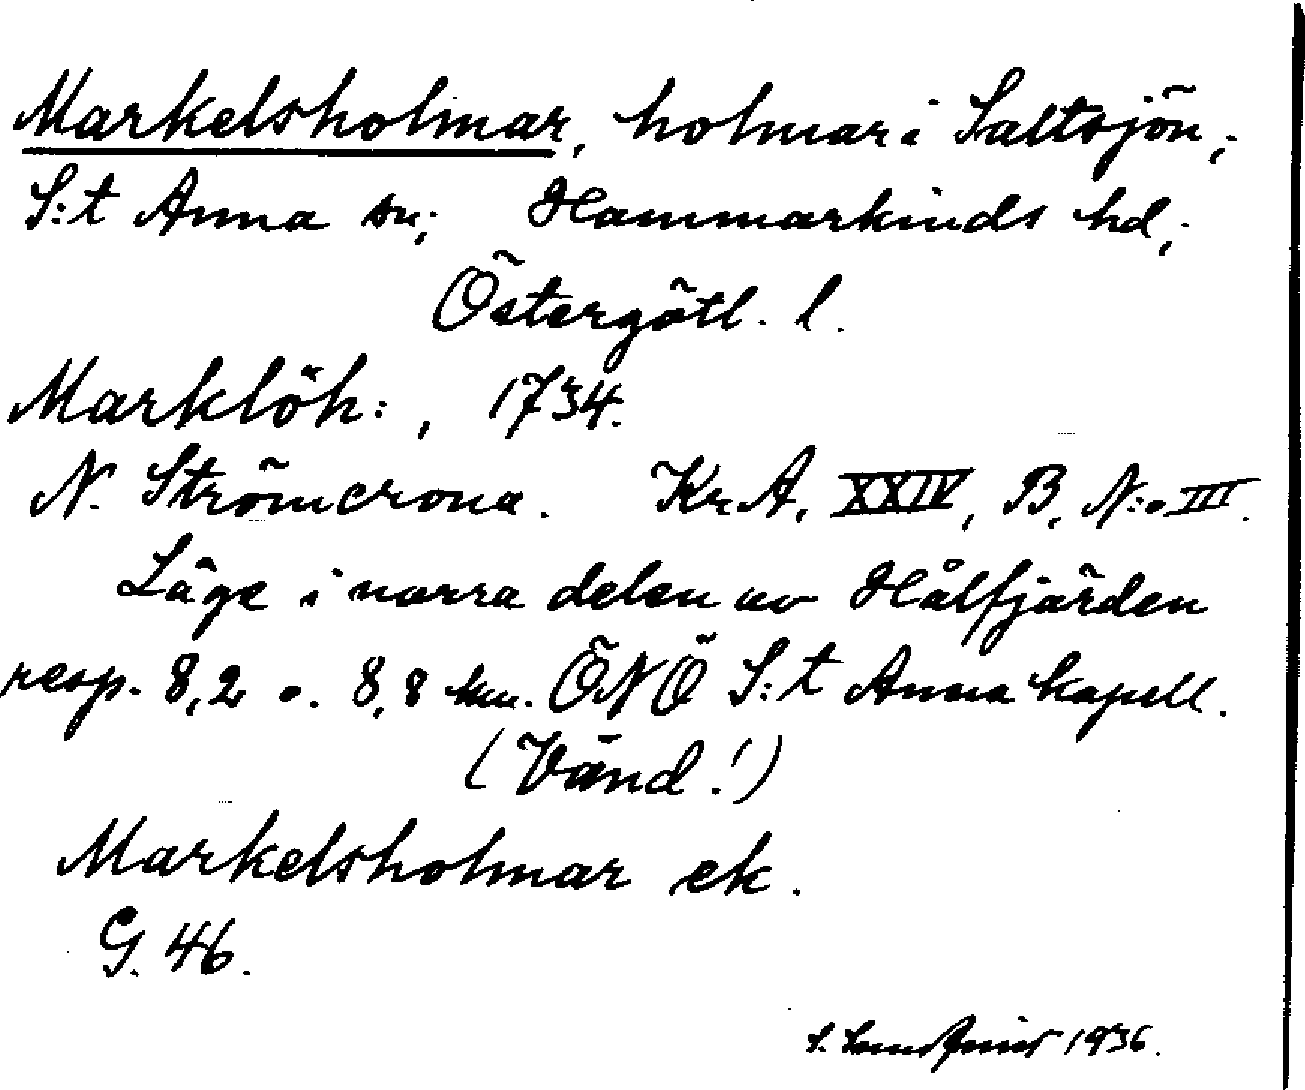 Markelsholmar, holmar i Saltsjön,
S:t Anna sn; Hammarkinds hd,
Östergötl. l.
Marklöh:, 1734.
N. Strömcrona. Kr.A. XXIV, B, N:o III.
Läge i norra delen av Hålfjärden
resp. 8,2 o. 8,8 km. ÖNÖ S:t Anna kapell.
(Vänd!)
Markelsholmar ek.
G. 46.
S. 1936.